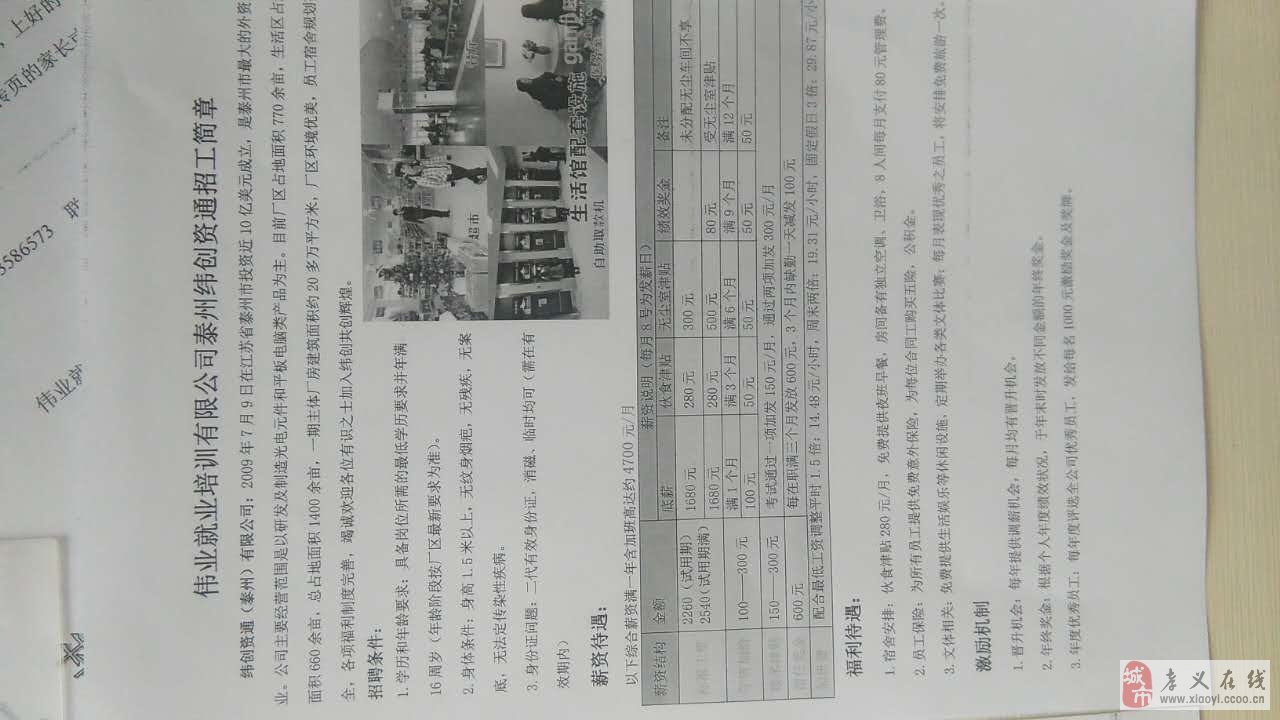 ，上好的
转页的家长
3586573
伟业
伟业就业培训有限公司泰州纬创资通招工简章
纬创资通（泰州）有限公司；2009年7月9日在江苏省泰州市投资近10亿美元成立，是泰州市最大的外资
业。公司主要经营范围是以研发及制造光电元件和平板电脑类产品为主。目前厂区占地面积770余亩，生活区占
面积660余亩，总占地面积1400余亩，一期主体厂房建筑面积约20多万平方米，厂区环境优美，员工宿舍规划
全，各项福利制度完善，竭诚欢迎各位有识之士加入纬创共创辉煌。
招聘条件：
1.学历和年龄要求：具备岗位所需的最低学历要求并年满
16周岁（年龄阶段按厂区最新要求为准）。
2.身体条件：身高1.5米以上，无纹身烟疤，无残疾，无案
底，无法定传染性疾病。
3.身份证问题：二代有效身份证，消磁、临时均可（需在有
效期内）
超市
自助取款机
生活馆配套设施
薪资待遇：
以下综合薪资满一年含加班高达约4700元/月
薪资结构 金额 薪资说明（每月8号为发薪日）
底薪 伙食津贴 无尘室津贴 绩效奖金 备注
2260（试用期） 1680元 280元 300元 未分配无尘车间不享
2540（试用期满） 1680元 280元 500元 80元 受无尘室津贴
100—300元 满1个月 满3个月 满6个月 满9个月 满12个月
100元 50元 50元 50元 50元
150—300元 考试通过一项加发150元/月，通过两项加发300元/月
600元 每在职满三个月发放600元，3个月内缺勤一天减发100元
配合最低工资调整平时1.5倍：14.48元/小时，周末两倍：19.31元/小时，固定假日3倍：29.87元/小
福利待遇：
1.宿舍安排：伙食津贴280元/月，免费提供夜班早餐，房间备有独立空调、卫浴，8人间每月支付80元管理费。
2.员工保险：为所有员工提供免费意外保险，为每位合同工购买五险，公积金。
3.文体相关：免费提供生活娱乐等休闲设施，定期举办各类文体比赛；每月表现优秀之员工，将安排免费旅游一次。
激励机制
1.晋升机会：每年提供调薪机会，每月均有晋升机会。
2.年终奖金：根据个人年度绩效状况，于年末时发放不同金额的年终奖金。
3.年度优秀员工：每年度评选全公司优秀员工，发给每名1000元激励奖金及奖牌。
城市
孝义在线
www.xiaoyi.ccoo.cn